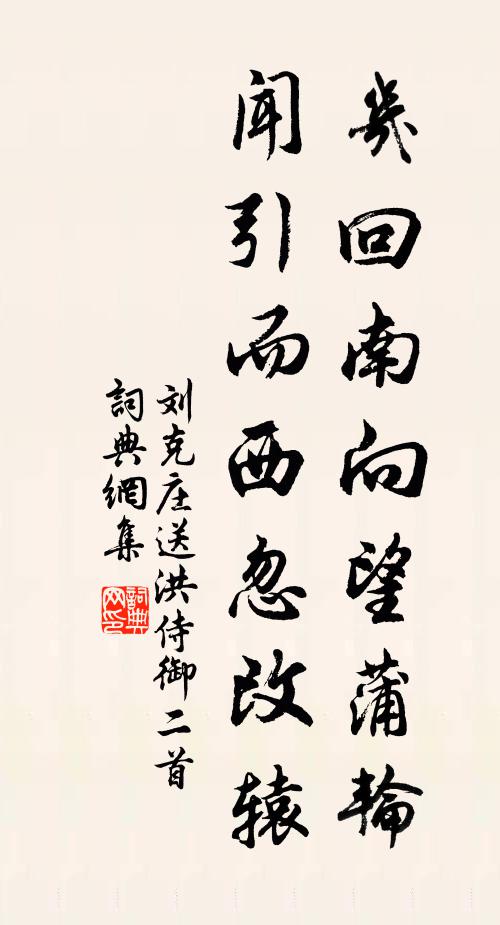 幾回南向望蒲輪
聞引而西忽改辕
刘克庄送洪侍御二首
詞典網集
詞典网印